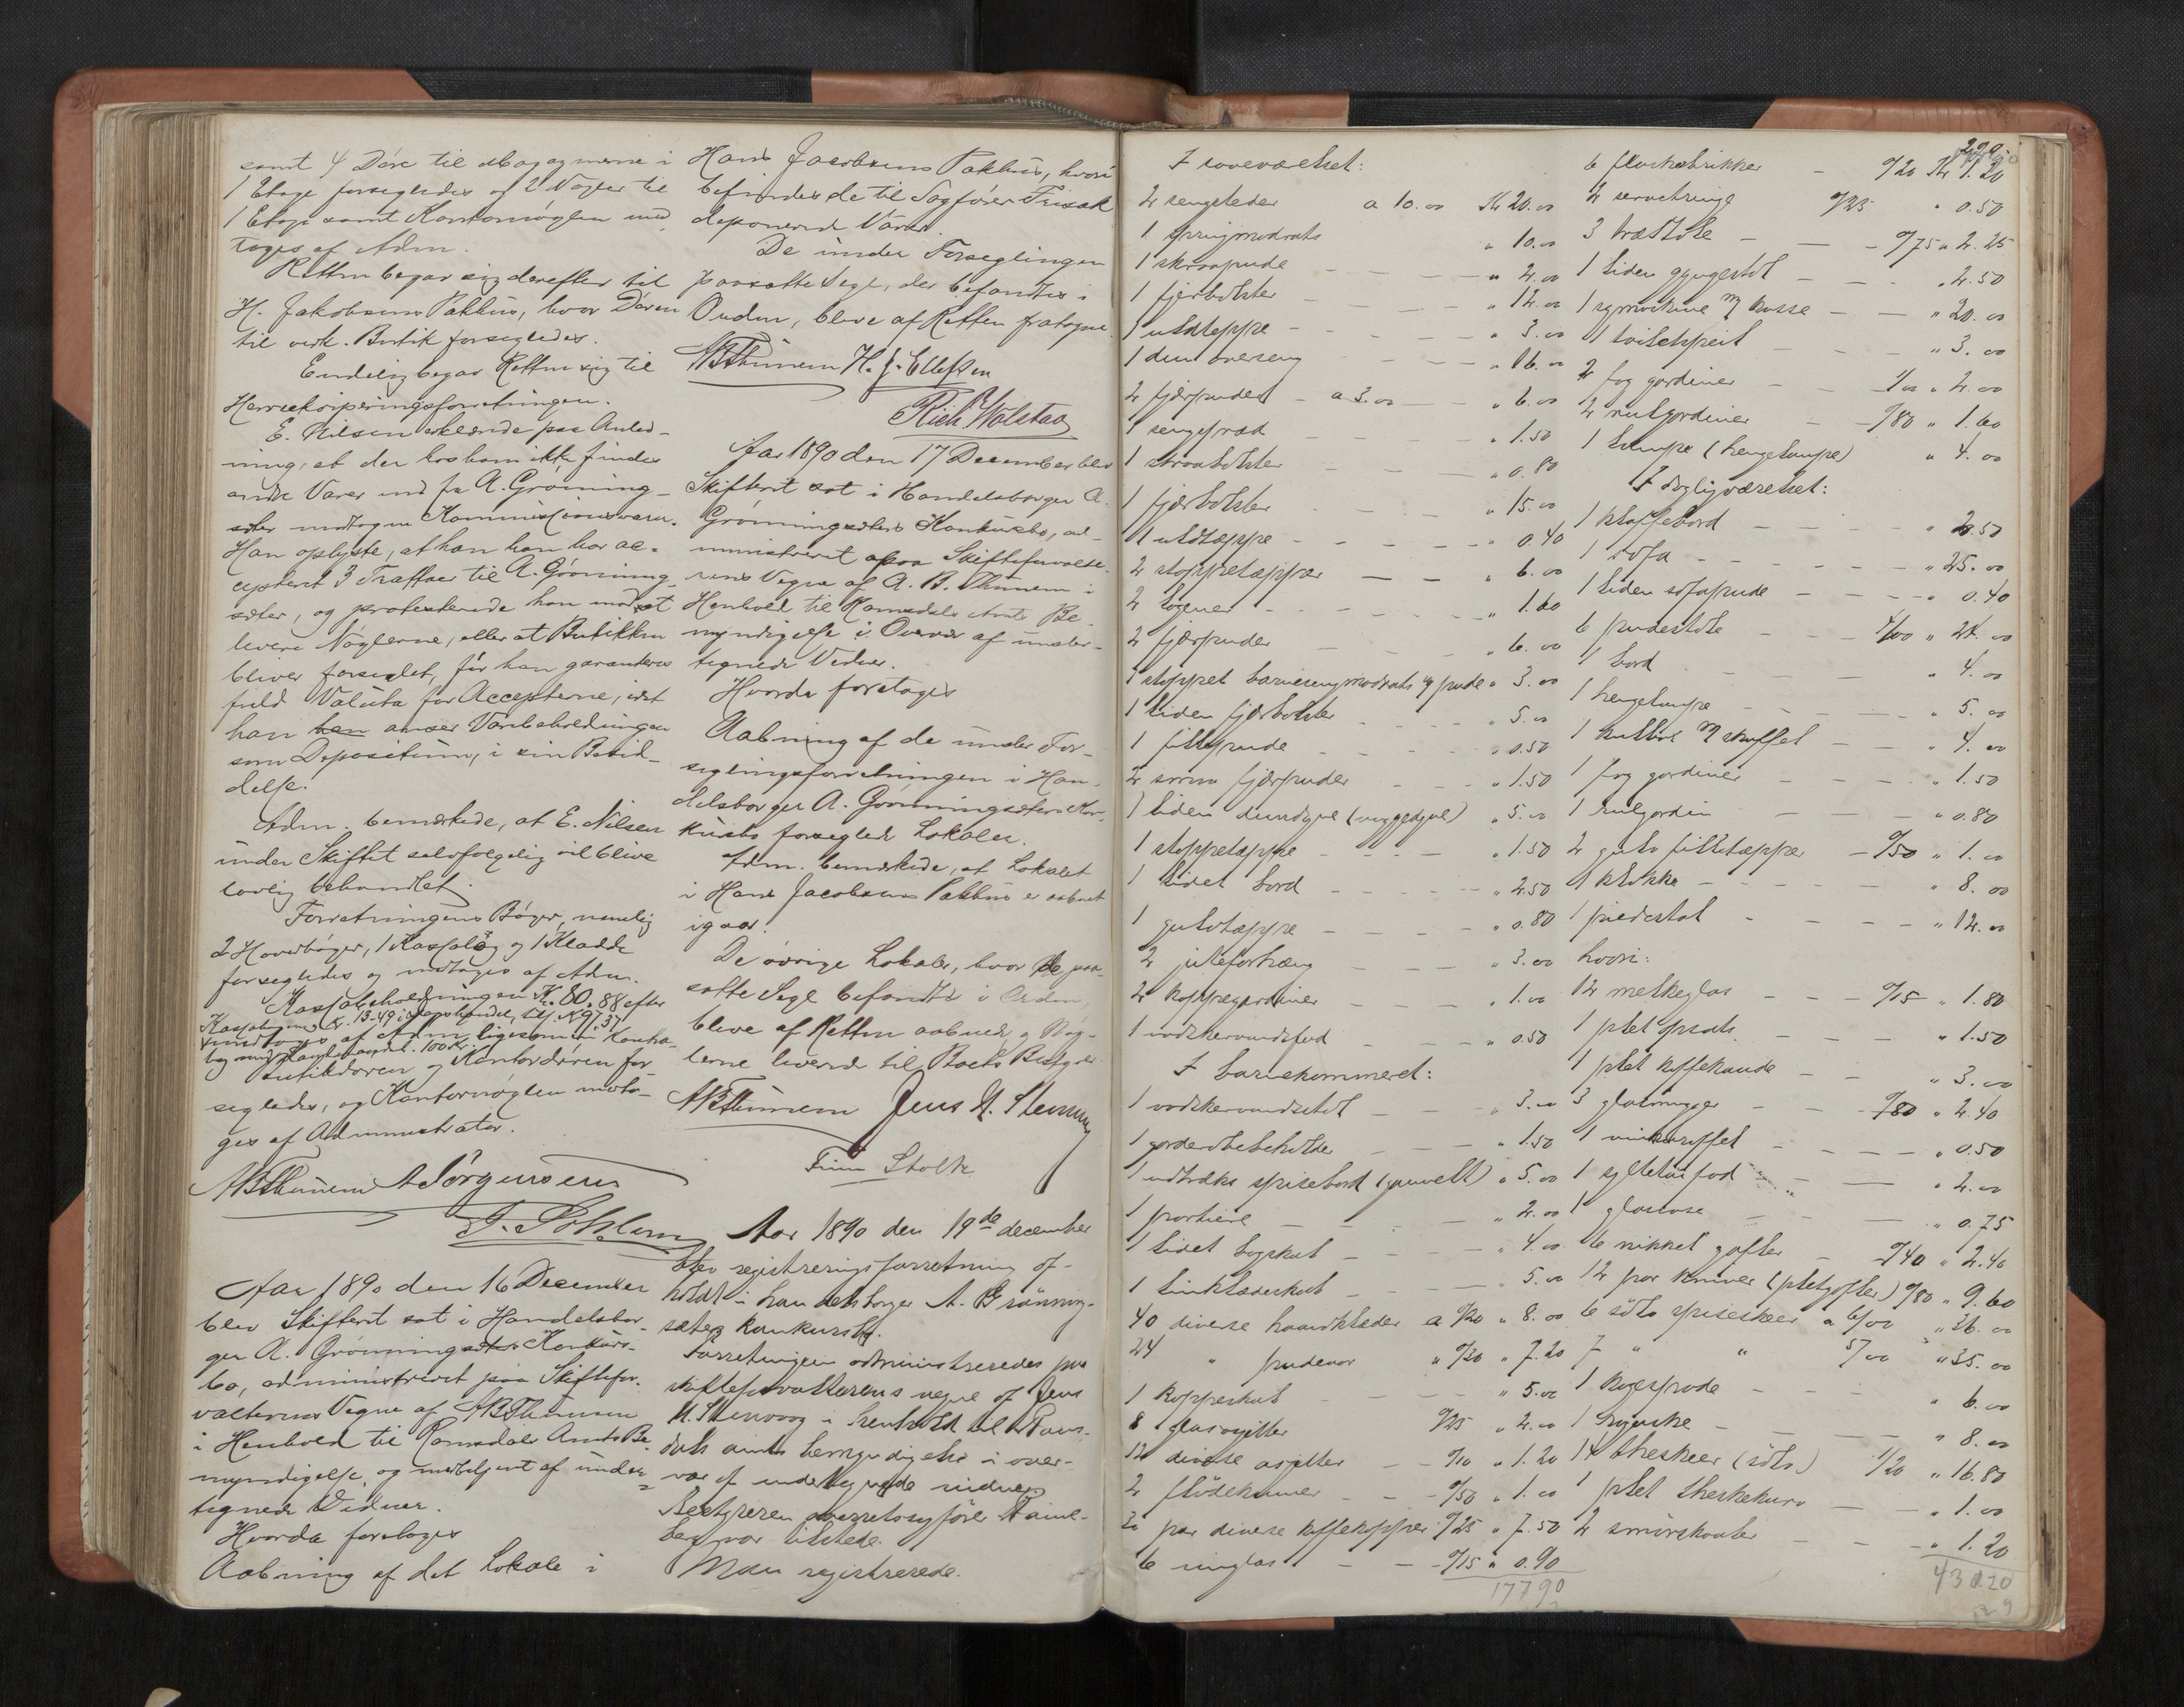 samt 4 Døre til Udgagnene i
1 Etage forsegledes og 2 Nøgler til
1 Etage samt Kontornøglen mod
toges af Adm.
Retten begav sig derefter til
H. Jakobsens Pakhus, hvor Døren
til Butik forsegledes.
Endelig begav Retten sig til
Herreekviperingsforretningen.
E. Nilsen erklærede paa Anled-
ning, at der hos ham ikke findes
andre Varer end fra A. Grønning-
sæter modtagne Kommissionsvarer.
Han oplyste, at han har ac-
cepteret 3 Tratter til A. Grønning
sæter, og protesterede han mod at
levere Nøglerne, eller at Butikken
bliver forseglet, før han garanteres
fuld Valuta for Accepterne, idet
han anser Varebeholdningen
som Depositum, i sin Besid-
delse.
Adm. bemærkede, at E. Nilsen
under Skiftet selvfølgelig vil blive
lovlig behandlet.
Forretningens Bøger, nemlig
2 Hovedbøger, 1 Kassabog og 1 Kladde
forsegledes og modtages af Adm.
Kassabeholdningen Kr. 80.88 efter
modtoges af Adm. ligesom
Butikdøren og Kontordøren for-
segledes, og Kontornøglen modta-
ges af Administrator.
ABThünem AJørgensen
Aar 1890 den 16 December
blev Skifteret sat i Handelsbor-
ger A. Grønningsæters Konkurs-
bo, administreret paa Skiftefor-
valterens Vegne af ABThünem
i Henhold til Romsdals Amts Be-
myndigelse, og medbetjent af under-
tegnede Vidner.
Hvorda foretoges
Aabning af det Lokale i
Hans Jacobsens Pakhus, hvori
befindes de til Sagfører Frisak
deponerede Varer.
De under Forseglingen
paasatte Segl, der befandtes i
Orden, bleve af Retten fratagne.
ABThünem H. J. Ellefsen
Rich Wolstad
Aar 1890 den 17 December blev
Skifteret sat i Handelsborger A.
Grønningsæters Konkursbo, ad-
ministreret paa Skifteforvalte-
rens Vegne af A. B. Thünem i
Henhold til Romsdals Amts Be-
myndigelse i Overvær af under-
tegnede Vidner.
Hvorda foretoges
Aabning af de under For-
seglingsforretningen i Han-
delsborger A. Grønningsæters Kon-
kursbo forseglede Lokaler.
Adm. bemærkede, at Lokalet
i Hans Jacobsens Pakhus er aabnet
igaar.
De øvrige Lokaler, hvor de paa-
satte Segl befandtes i Orden,
bleve af Retten aabnede og Nøg-
lerne leverede til Boets Bestyrer.
ABThünem Jens N. Stenvaag
Finn Stolte
Aar 1890 den 19de december
blev registreringsforretning af-
holdt i handelsborger A. Grønning-
sæters konkursbo.
Forretningen administreredes paa
skifteforvalterens vegne af Jens
N. Stenvaag i henhold til Roms-
dals amts bemyndigelse i over-
vær af undertegnede vidner.
Bestyreren overretssagfører
var tilstede.
Man registrerede.
290
I soveværelset:
2 sengesteder a 10.00 Kr 20.00
1 springmadrats " 10.00
1 skraapude " 2.00
1 fjerbolster " 12.00
1 uldteppe " 3.00
1 dun overseng " 16.00
2 fjærpuder a 3.00 " 6.00
1 sengestad " 1.50
1 straabolster " 0.80
1 fjærbolster " 15.00
1 uldtæppe " 0.40
2 stoppetæpper " 6.00
2 lagener " 1.60
2 fjærpuder " 6.00
1 stoppet barnesengmadrats og pude " 3.00
1 liden fjærbolster " 5.00
1 fillepude " 0.50
2 smaa fjærpuder " 1.50
1 liden dundyne (vuggedyne) " 5.00
1 stoppetæppe " 1.50
1 lidet bord " 2.50
1 gulvtæppe " 0.80
2 juleforhæng " 3.00
2 koppegardiner " 1.00
1 vaskevandsfad " 0.50
I barnekammeret:
1 vaskevandsstol " 3.00
1 garderobebeholder " 1.50
1 udtræks spisebord (gammelt) " 5.00
1 portiere " 2.00
1 lidet bogskab " 4.00
1 linklædeskab " 5.00
40 diverse haandklæder a 0/20 " 8.00
24 " pudevar " 0/30 " 7.20
1 koppeskab " 5.00
8 glasasjetter 0/25 " 2.00
12 diverse asjetter 0/10 " 1.20
2 flødekanner 0/50 " 1.00
30 par diverse kaffekopper 0/25 " 7.50
6 vinglas 0/15 " 0.90
17790
6 flaskebrikker 0/20 Kr 1.20
2 servietringe 0/25 " 0.50
3 træstole 0/75 " 2.25
1 liden gyngestol " 2.50
1 symaskine m/ kasse " 20.00
1 toiletspeil " 3.00
2 fag gardiner 1/00 " 2.00
2 rulgardiner 0/80 " 1.60
1 lampe (hengelampe) " 4.00
I dagligværelset:
1 klaffebord " 2.50
1 sofa " 25.00
1 liden sofapude " 0.40
6 pudestole 4/00 " 24.00
1 bord " 4.00
1 hengelampe " 5.00
1 kulbox m/ skuffel " 4.00
1 fag gardiner " 1.50
1 rulgardin " 0.80
2 gulv filletæpper 0/50 " 1.00
1 klokke " 8.00
1 piedestal " 12.00
hvori:
12 melkeglas 0/15 " 1.80
1 plet opsats " 1.50
1 plet kaffekande " 3.00
3 glasmugger 0/80 " 2.40
1 vinkaraffel " 0.50
1 syltetøifad " 2.00
1 glasvase " 0.75
6 nikkel gafler 0/40 " 2.40
12 par kniver (pletgafler) 0/80 " 9.60
6 sølv spiseskeer a 6/00 " 36.00
7 " " 5/00 " 35.00
1 kagespade " 6.00
1 " 8.00
14 theskeer (sølv) 1/20 " 16.80
1 plet theskekurv " 1.00
2 smørskaaler " 1.20
43020